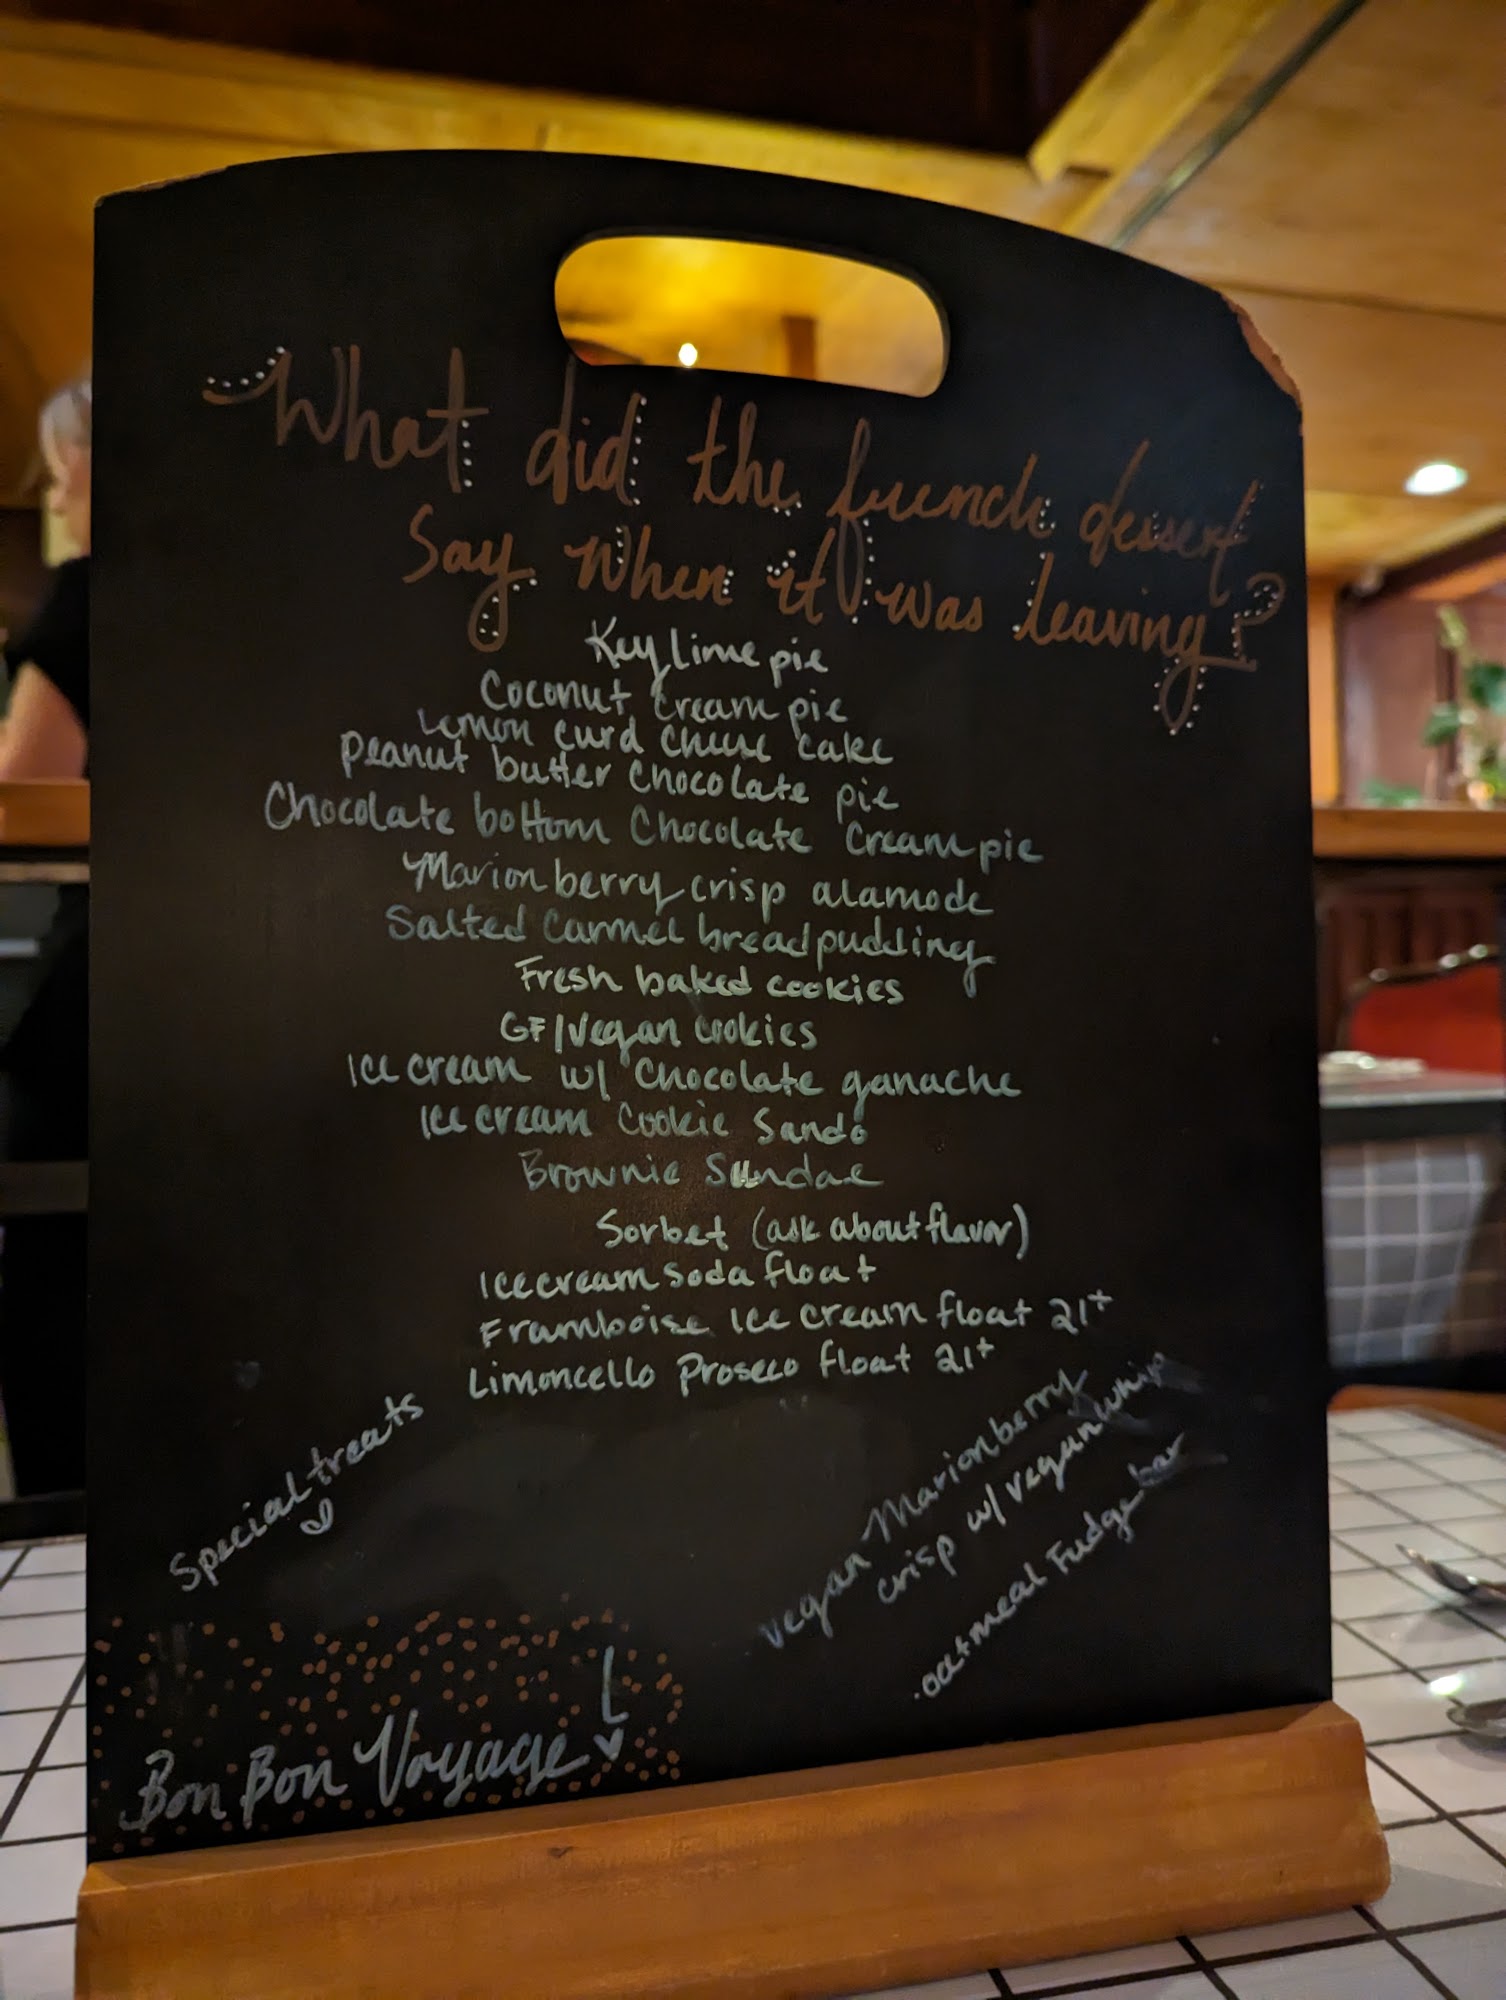 What did the french dessert
Say when it was leaving?
Key lime pie
Coconut cream pie
Lemon curd cheese cake
Peanut butter chocolate pie
Chocolate bottom Chocolate Cream pie
Marionberry crisp alamode
Salted Carmel bread pudding
Fresh baked cookies
GF/Vegan cookies
Ice cream w/ Chocolate ganache
Ice cream Cookie Sando
Brownie Sundae
Sorbet (ask about flavor)
Ice cream soda float
Framboise Ice cream float 21+
Limoncello Proseco float 21+
Special treats
vegan Marionberry
crisp w/ vegan whip
.oatmeal Fudge bar
Bon Bon Voyage!